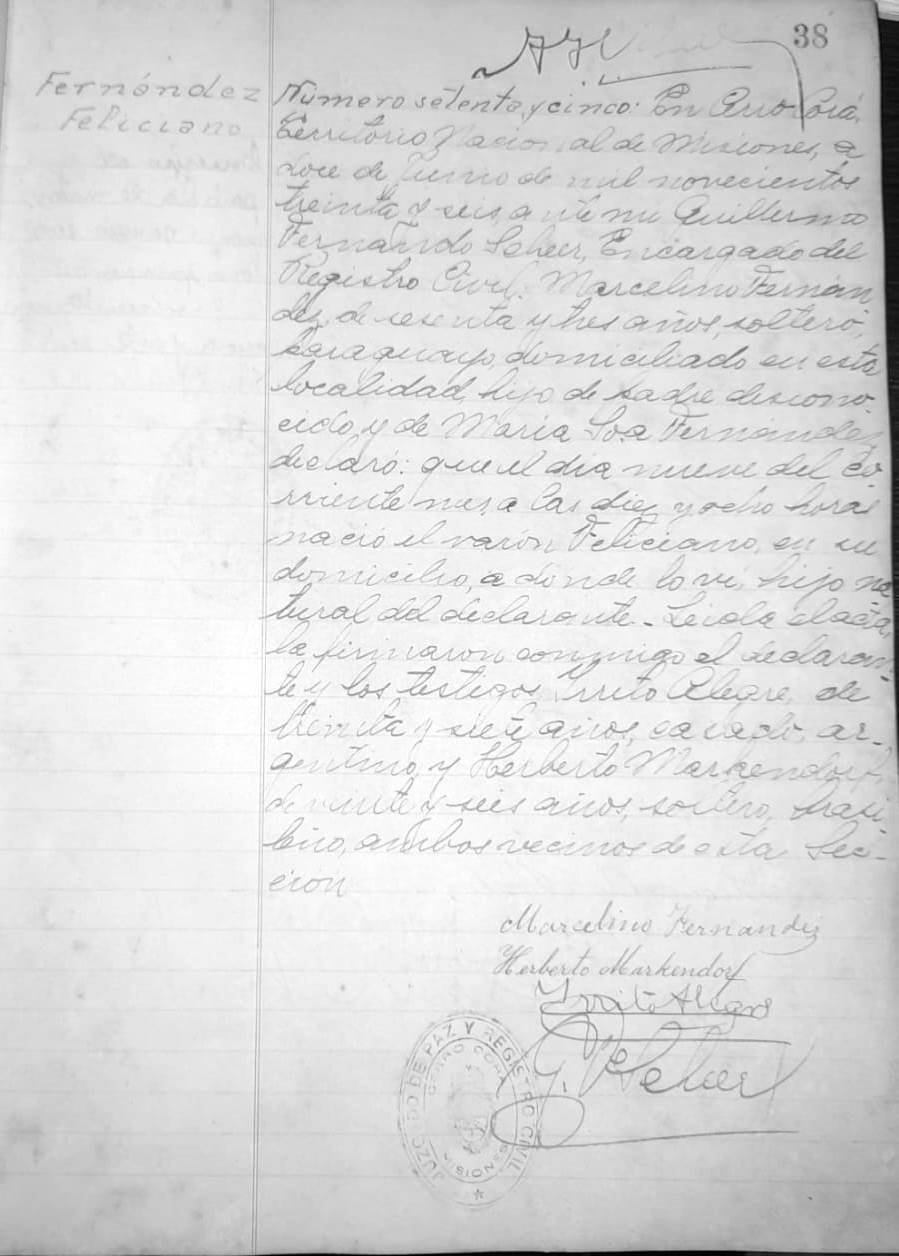 38
Fernández
Feliciano
Número setenta y cinco: En Cerro Corá,
Territorio Nacional de Misiones, a
doce de Junio de mil novecientos
treinta y seis, ante mi Guillermo
Fernando Scheer, Encargado del
Registro Civil. Marcelino Fernán
dez, de sesenta y tres años, soltero,
paraguayo, domiciliado en esta
localidad, hijo de padre descono
cido, y de María Fernández
declaró: que el día nueve del co
rriente mes, a las diez y ocho horas
nació el varón Feliciano, en su
domicilio, a donde lo vi, hijo na
tural del declarante. Leída el acta,
la firmaron conmigo el declaran-
te y los testigos Irrito Alegre, de
treinta y siete años, casado, ar-
gentino, y Herberto Markendorf,
de veinte y seis años, soltero, brasi
leño, ambos vecinos de esta Sec-
ción
Marcelino Fernandez
Herberto Markendorf
Irrito Alegre
G. F. Scheer
JUZGADO DE PAZ Y REGISTRO CIVIL
CERRO CORÁ
MISIONES